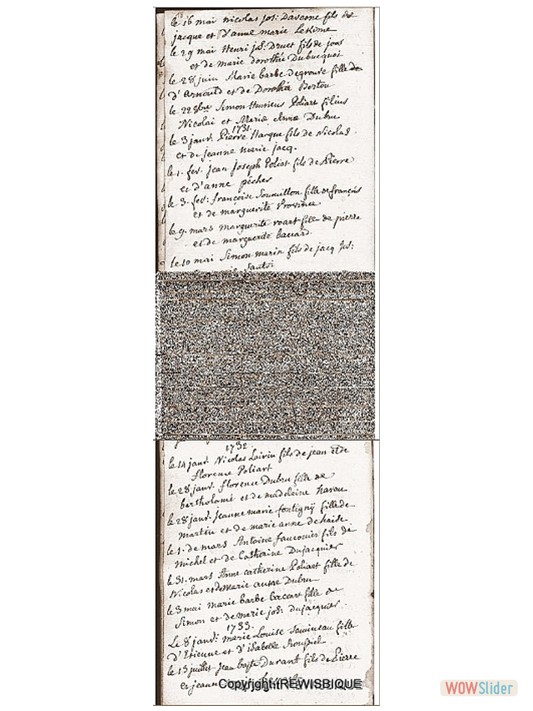 le 16 mai nicolas jos: Davoine fils de
jacque et D'anne marie
le 29 mai Henri js: Druet fils de joos
et de marie dorothée Dubucquoi
le 28 juin Marie barbe degrouve fille de
d'Arnould et de Dorothee Bertou
le 22 8bre Simon Huvinus Poliart filius
Nicolai et Mariæ Annæ Dubru
1731.
le 3 janv. Pierre Harque fils de Nicolas
et de jeanne marie jacq.
le 1. fev. jean joseph Poliat fils de Pierre
et d'anne pecher
le 3. fev: françoise Soumillon fille de françois
et de marguerite Province
le 9 mars marguerite roart fille de pierre
et de marguerite baccard
le 10 mai Simon marin fils de jacq jos:
1732.
le 14 janv. Nicolas Loivin fils de jean et de
florence Poliart
le 28 janv. florence Dubru fille de
bartholomé et de madeleine
le 28 janv. jeanne marie fontigny fille de
martin et de marie anne dehaise
le 1. de mars Antoine faucouier fils de
michel et de Catherine Dujacquier
le 31. mars Anne catherine Poliart fille de
Nicolas et de Marie anne Dubru
le 3 mai marie barbe Baccart fille de
Simon et de marie jos: Dujacquier
1733.
Le 8 janv: marie Louise fille
d'Etienne et d'isabelle
le 13 juillet jean bapte Durant fils de Pierre
et jeanne
Copyright REWISBIQUE
WOWSlider